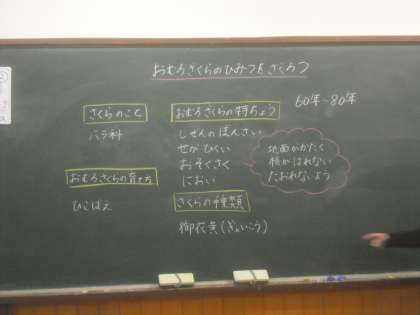 おむろざくらのひみつをさぐろう
60年~80年
さくらのこと
バラ科
おむろざくらの育て方
ひこばえ
おむろざくらの特ちょう
しぜんのぼんさい
せがひくい
おそくさく
におい
地面がかたく
根がはれない
たおれないよう
さくらの種類
御衣黄(ぎょいこう)